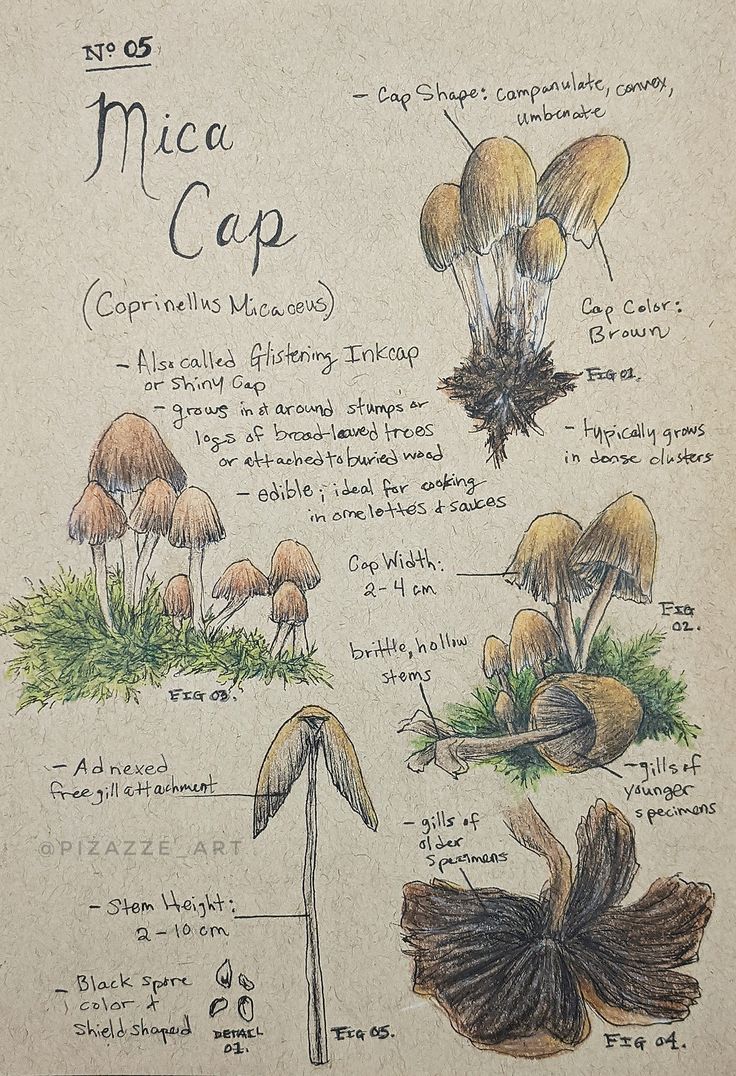 Nº 05
Mica
Cap
(Coprinellus Micaceus)
- Also called Glistening Inkcap
or Shiny Cap
- grows in or around stumps or
logs of broad-leaved trees
or attached to buried wood
- edible; ideal for cooking
in omelettes & sauces
- Cap Shape: campanulate, convex,
umbonate
Cap Color:
Brown
FIG 01.
- typically grows
in dense clusters
Cap Width:
2-4 cm
FIG
02.
brittle, hollow
stems
- gills of
younger
specimens
FIG 03.
- Adnexed
free gill attachment
@PIZAZZE_ART
- gills of
older
specimens
- Stem Height:
2-10 cm
- Black spore
color &
shield shaped
DETAIL
01.
FIG 05.
FIG 04.